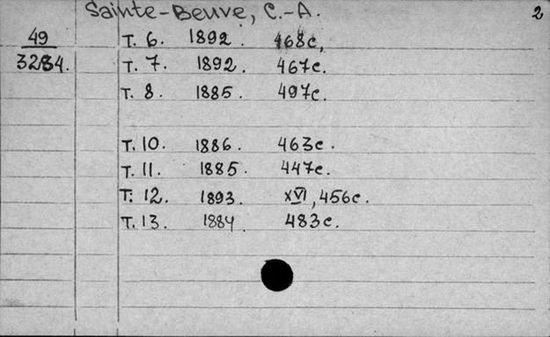 Sainte-Beuve, C.-A. 2
49 T. 6. 1892. 468с,
3284. T. 7. 1892. 467с.
T. 8. 1885. 497с.
T. 10. 1886. 463с.
T. 11. 1885. 447с.
T. 12. 1893. XVI, 456с.
T. 13. 1884. 483с.